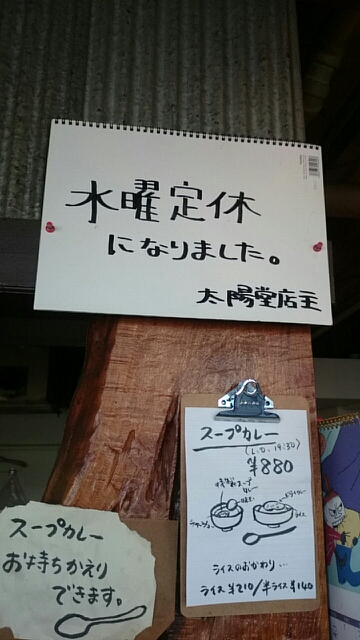 水曜定休
になりました。
太陽堂店主
スープカレー
(L.O. 19:30)
¥880
ライス
ライスのおかわり…
ライス¥210/半ライス¥140
スープカレー
お持ちかえり
できます。